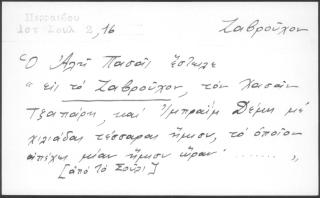 Περραιβού
Ιστ Σουλ 2, 16
Ζαβροῦχον
Ὁ Ἀλῆ Πασᾶς ἔστειλε
"εἰς τό Ζαβροῦχον, τόν Χασάν
Τζαπάρη, καί Ἰμπραΐμ Δέμη μέ
χιλιάδας τέσσαρας ἥμισυ, τό ὁποῖον
ἀπέχει μίαν ἥμισυ ὥραν ........ "
[ἀπό τό Σούλι]